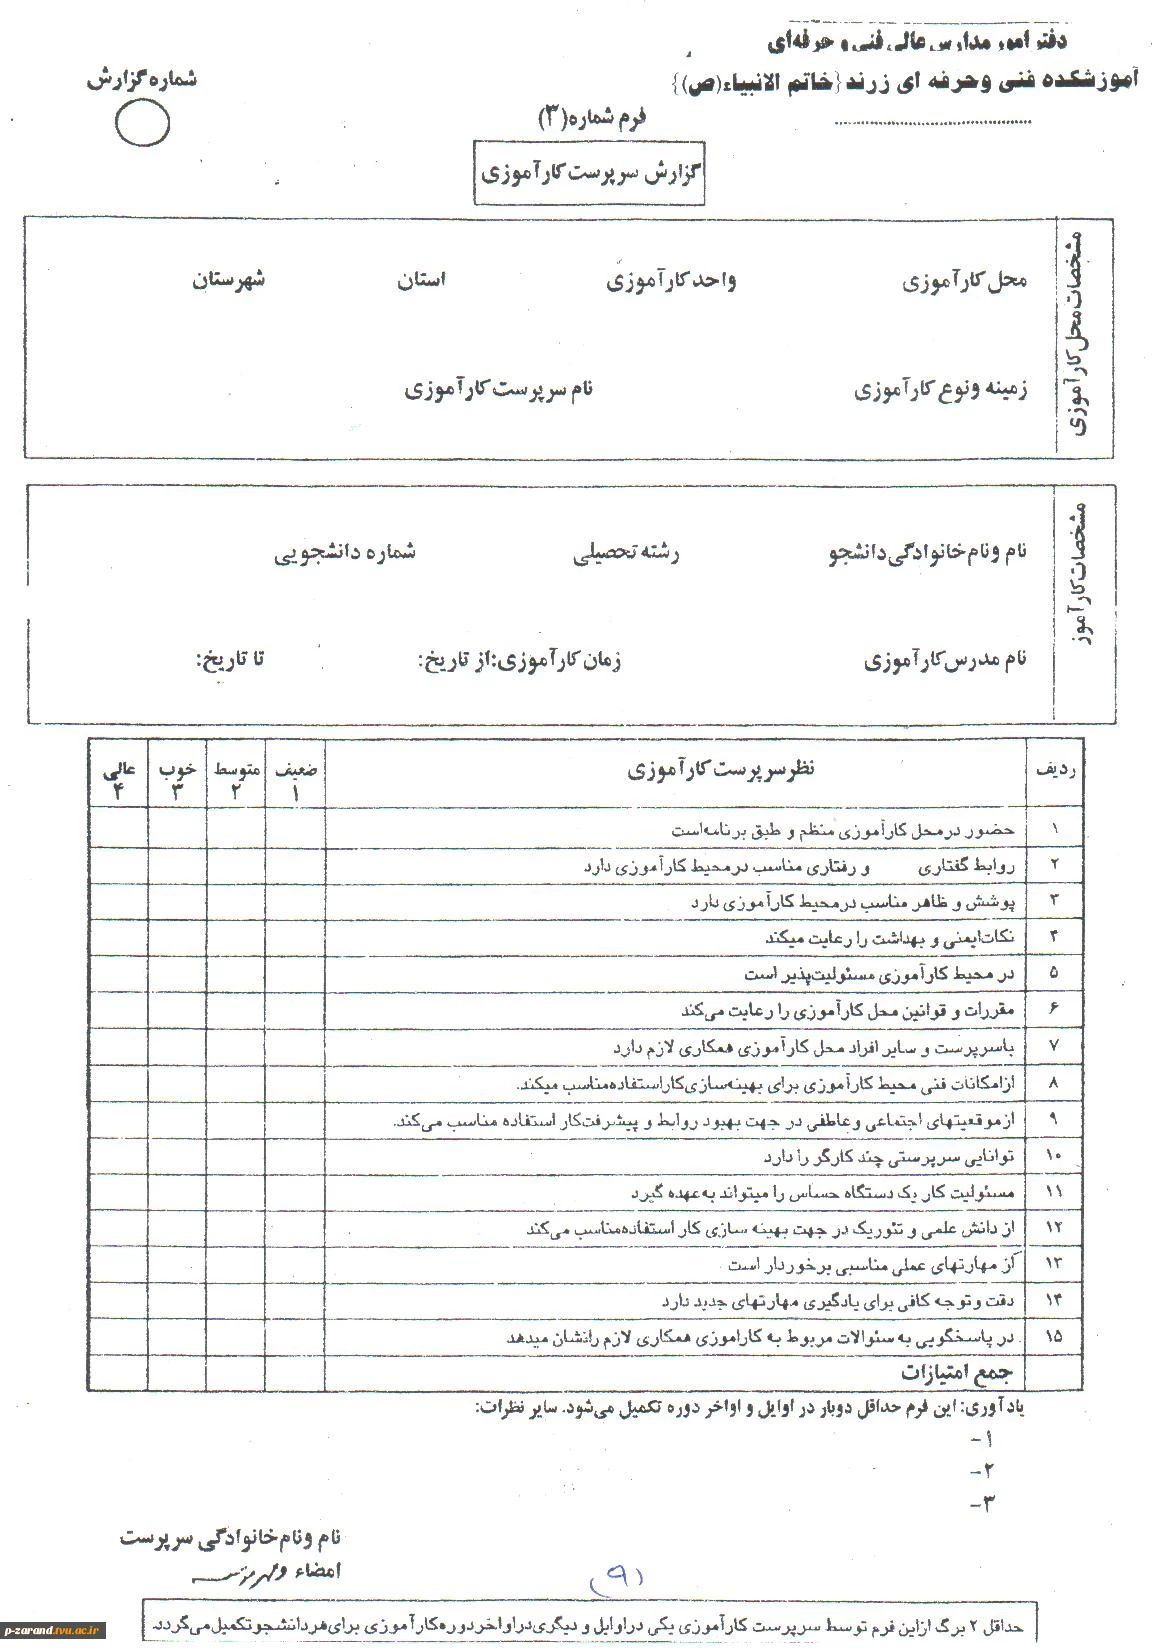 دفتر امور مدارس عالی فنی و حرفه‌ای
آموزشکده فنی وحرفه ای زرند {خاتم الانبیاء(ص)}
شماره گزارش
فرم شماره (۳)
گزارش سرپرست کارآموزی
مشخصات محل کارآموزی
محل کارآموزی واحد کارآموزی استان شهرستان
زمینه ونوع کارآموزی نام سرپرست کارآموزی
مشخصات کارآموز
نام ونام خانوادگی دانشجو رشته تحصیلی شماره دانشجویی
نام مدرس کارآموزی زمان کارآموزی: از تاریخ: تا تاریخ:
ردیف نظر سرپرست کارآموزی ضعیف متوسط خوب عالی
۱ ۲ ۳ ۴
۱ حضور درمحل کارآموزی منظم و طبق برنامه‌است
۲ روابط گفتاری و رفتاری مناسب درمحیط کارآموزی دارد
۳ پوشش و ظاهر مناسب درمحیط کارآموزی دارد
۴ نکات‌ایمنی و بهداشت را رعایت میکند
۵ در محیط کارآموزی مسئولیت‌پذیر است
۶ مقررات و قوانین محل کارآموزی را رعایت می‌کند
۷ باسرپرست و سایر افراد محل کارآموزی همکاری لازم دارد
۸ ازامکانات فنی محیط کارآموزی برای بهینه‌سازی‌کاراستفاده‌مناسب میکند.
۹ ازموقعیتهای اجتماعی وعاطفی در جهت بهبود روابط و پیشرفت‌کار استفاده مناسب می‌کند.
۱۰ توانایی سرپرستی چند کارگر را دارد
۱۱ مسئولیت کار یک دستگاه حساس را میتواند به عهده گیرد
۱۲ از دانش علمی و تئوریک در جهت بهینه سازی کار استفاده‌مناسب می‌کند
۱۳ از مهارتهای عملی مناسبی برخوردار است
۱۴ دقت وتوجه کافی برای یادگیری مهارتهای جدید دارد
۱۵ در پاسخگویی به سئوالات مربوط به کاراموزی همکاری لازم رانشان میدهد
جمع امتیازات
یادآوری: این فرم حداقل دوبار در اوایل و اواخر دوره تکمیل می‌شود. سایر نظرات:
۱-
۲-
۳-
نام ونام خانوادگی سرپرست
امضاء و مهر موسسه
(۹)
حداقل ۲ برگ ازاین فرم توسط سرپرست کارآموزی یکی دراوایل و دیگری دراواخردوره‌کارآموزی برای‌هردانشجوتکمیل‌می‌گردد.
p-zarand.tvu.ac.ir